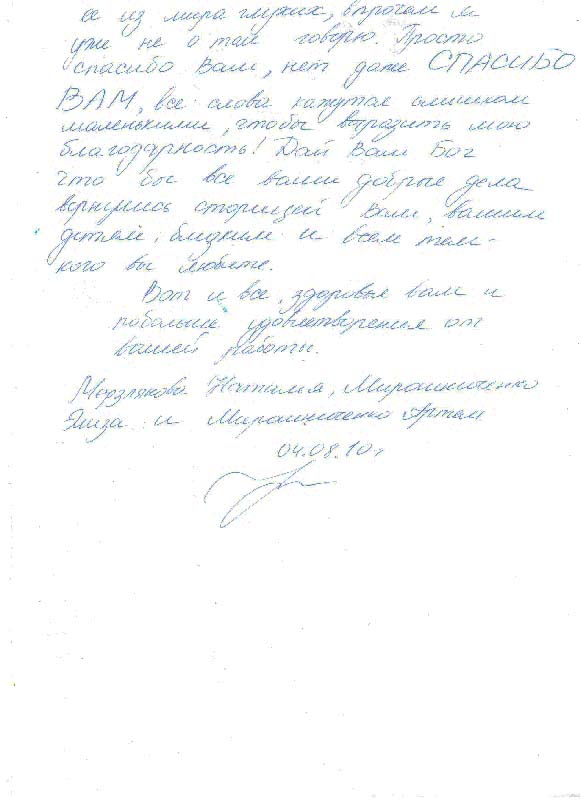 ее из мира глухих, впрочем я
уже не о том говорю. Просто
спасибо Вам, нет даже СПАСИБО
ВАМ, все слова кажутся слишком
маленькими, чтобы выразить мою
благодарность! Дай Вам Бог
что бы все ваши добрые дела
вернулись сторицей Вам, вашим
детям, близким и всем тем-
кого вы любите.
Вот и все, здоровья вам и
побольше удовлетворения от
вашей работы.
Мерзлякова Наталия, Мирошниченко
Лиза и Мирошниченко Артем
04.08.10г